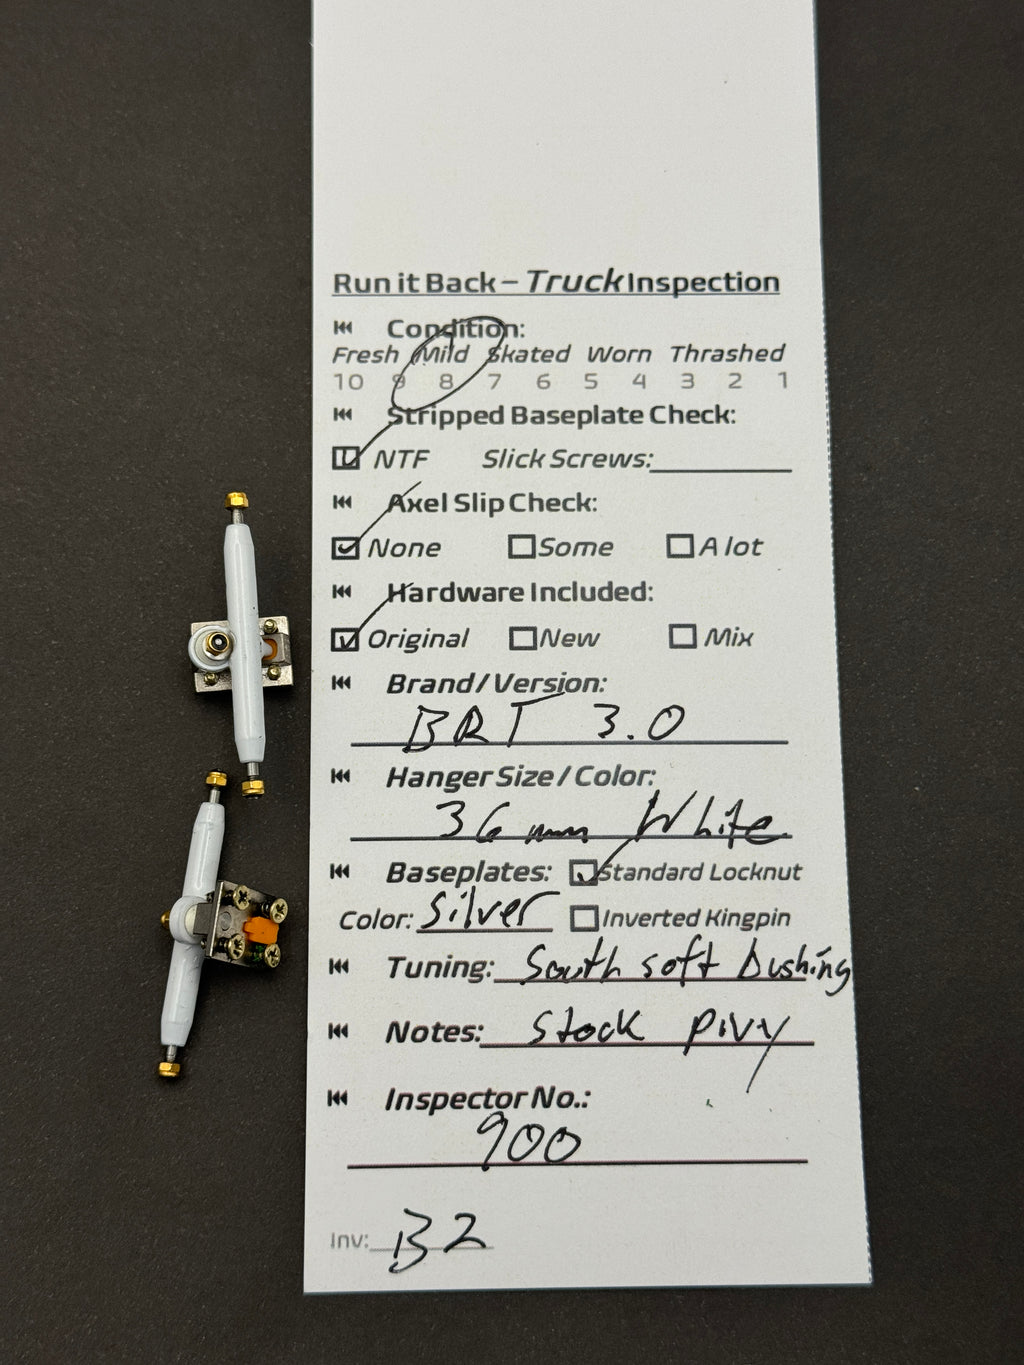 Run it Back – Truck Inspection
Condition:
Fresh Mild Skated Worn Thrashed
10 9 8 7 6 5 4 3 2 1
Stripped Baseplate Check:
NTF Slick Screws:
Axel Slip Check:
None Some A lot
Hardware Included:
Original New Mix
Brand/Version:
BRT 3.0
Hanger Size/Color:
36 mm White
Baseplates: Standard Locknut
Color: Silver Inverted Kingpin
Tuning: South soft bushing
Notes: Stock pivy
Inspector No.:
900
Inv: B2